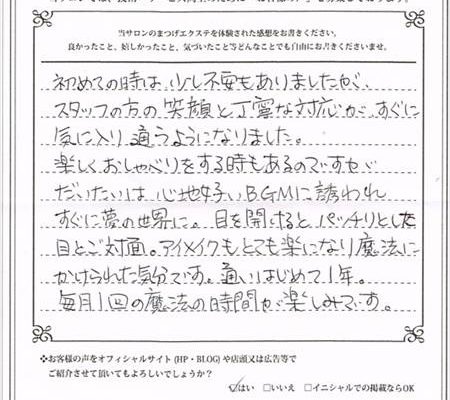 当サロンのまつげエクステを体験された感想をお書きください。
良かったこと、嬉しかったこと、気づいたこと等どんなことでも自由にお書きくださいませ。
初めての時は、少し不安もありましたが、
スタッフの方の笑顔と丁寧な対応が、すぐに
気に入り通うようになりました。
楽しくおしゃべりをする時もあるのですが
だいたいは心地好いBGMに誘われ
すぐに夢の世界に。目を開けるとパッチリとした
目とご対面。アイメイクもとても楽になり魔法に
かけられた気分です。通いはじめて1年。
毎月1回の魔法の時間が楽しみです。
❖お客様の声をオフィシャルサイト(HP・BLOG)や店頭又は広告等で
ご紹介させて頂いてもよろしいでしょうか?
☑はい □いいえ □イニシャルでの掲載ならOK